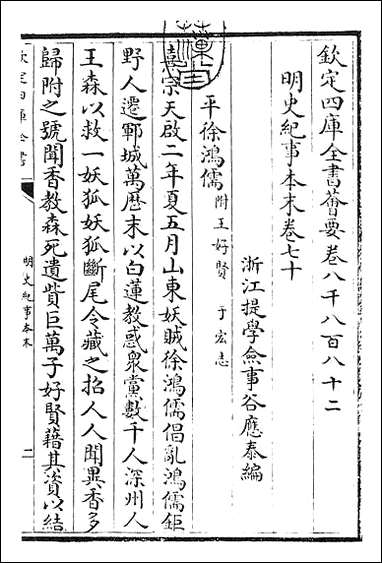 欽定四庫全書薈要卷八千八百八十二
明史紀事本末卷七十
浙江提學僉事谷應泰編
平徐鴻儒附王好賢 于宏志
熹宗天啟二年夏五月山東妖賊徐鴻儒倡亂鴻儒鉅
野人遷鄆城萬歷末以白蓮教惑衆黨數千人深州人
王森以救一妖狐妖狐斷尾令藏之招人人聞異香多
歸附之號聞香教森死遺貲巨萬子好賢藉其資以結
欽定四庫全書
明史紀事本末